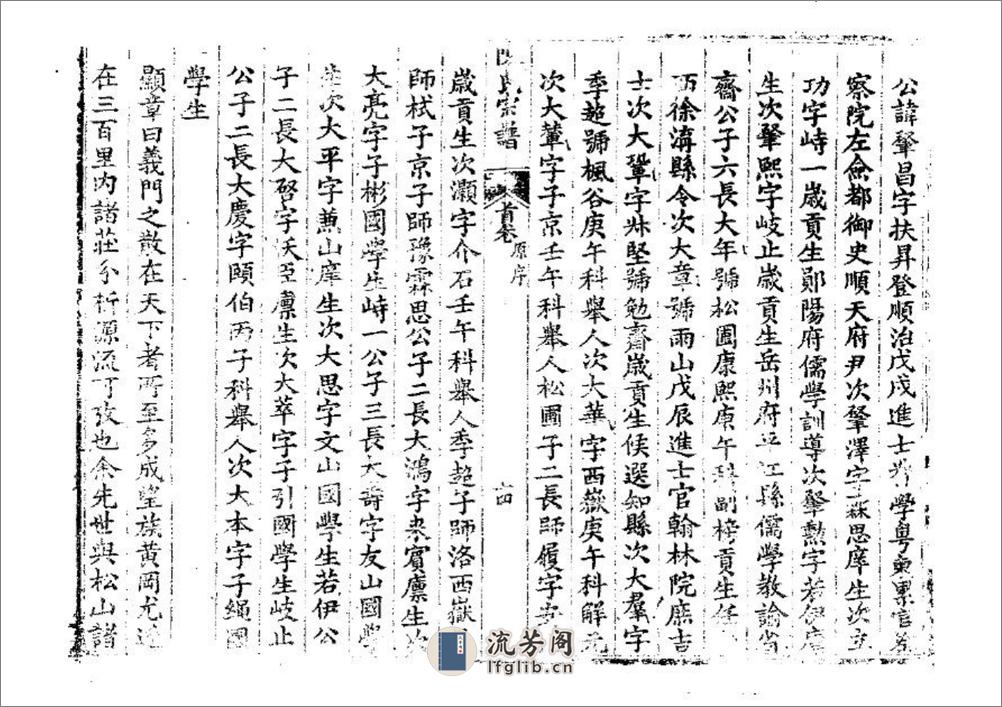 公諱肇昌字扶昇登順治戊戌進士學粵東累官
察院左僉都御史順天府尹次肇澤字霖思庠生次
功字峙一歲貢生鄖陽府儒學訓導次肇勲字若伊庠
生次肇熙字岐止歲貢生岳州府平江縣儒學教諭省
齋公子六長大年號松圃康熙庚午科副榜貢生任
西徐溝縣令次大章號雨山戊辰進士官翰林院庶吉
士次大鞏字牀堅號勉齋歲貢生候選知縣次大羣字
季超號楓谷庚午科舉人次大華字西嶽庚午科解元
次大輦字子京壬午科舉人松圃子二長師履字安
氏宗譜 首卷 原序 十四
歲貢生次灝字介石壬午科舉人季超子師洛西嶽
師栻子京子師豫霖思公子二長大鴻字來賓廪生次
大亮字子彬國學生峙一公子三長大壽字友山國學
生次大平字蕙山庠生次大思字文山國學生若伊公
子二長大啓字沃臣廪生次大萃字子引國學生岐止
公子二長大慶字頤伯丙子科舉人次大本字子繩國
學生
顯章曰義門之散在天下者所至多成望族黃岡尤近
在三百里內諸莊分析源流可攷也余先世與松山諸
流芳阁
lfglib.cn